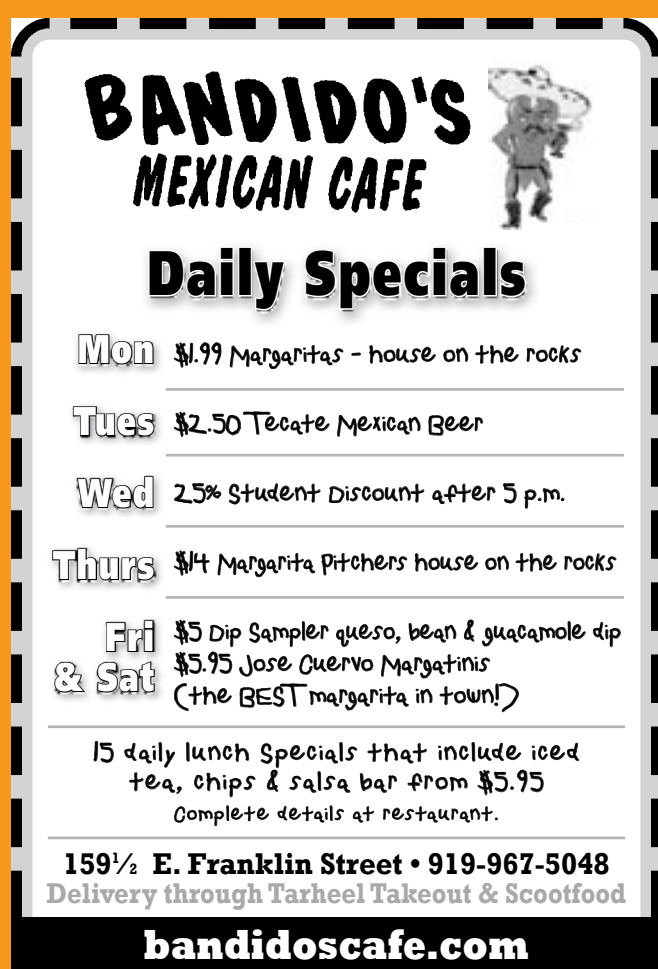 BANDIDO'S
MEXICAN CAFE
Daily Specials
Mon $1.99 Margaritas - house on the rocks
Tues $2.50 Tecate Mexican Beer
Wed 25% Student Discount after 5 p.m.
Thurs $14 Margarita Pitchers house on the rocks
Fri & Sat $5 Dip Sampler queso, bean & guacamole dip
$5.95 Jose Cuervo Margatinis
(the BEST margarita in town!)
15 daily lunch Specials that include iced
tea, chips & salsa bar from $5.95
Complete details at restaurant.
159½ E. Franklin Street • 919-967-5048
Delivery through Tarheel Takeout & Scootfood
bandidoscafe.com